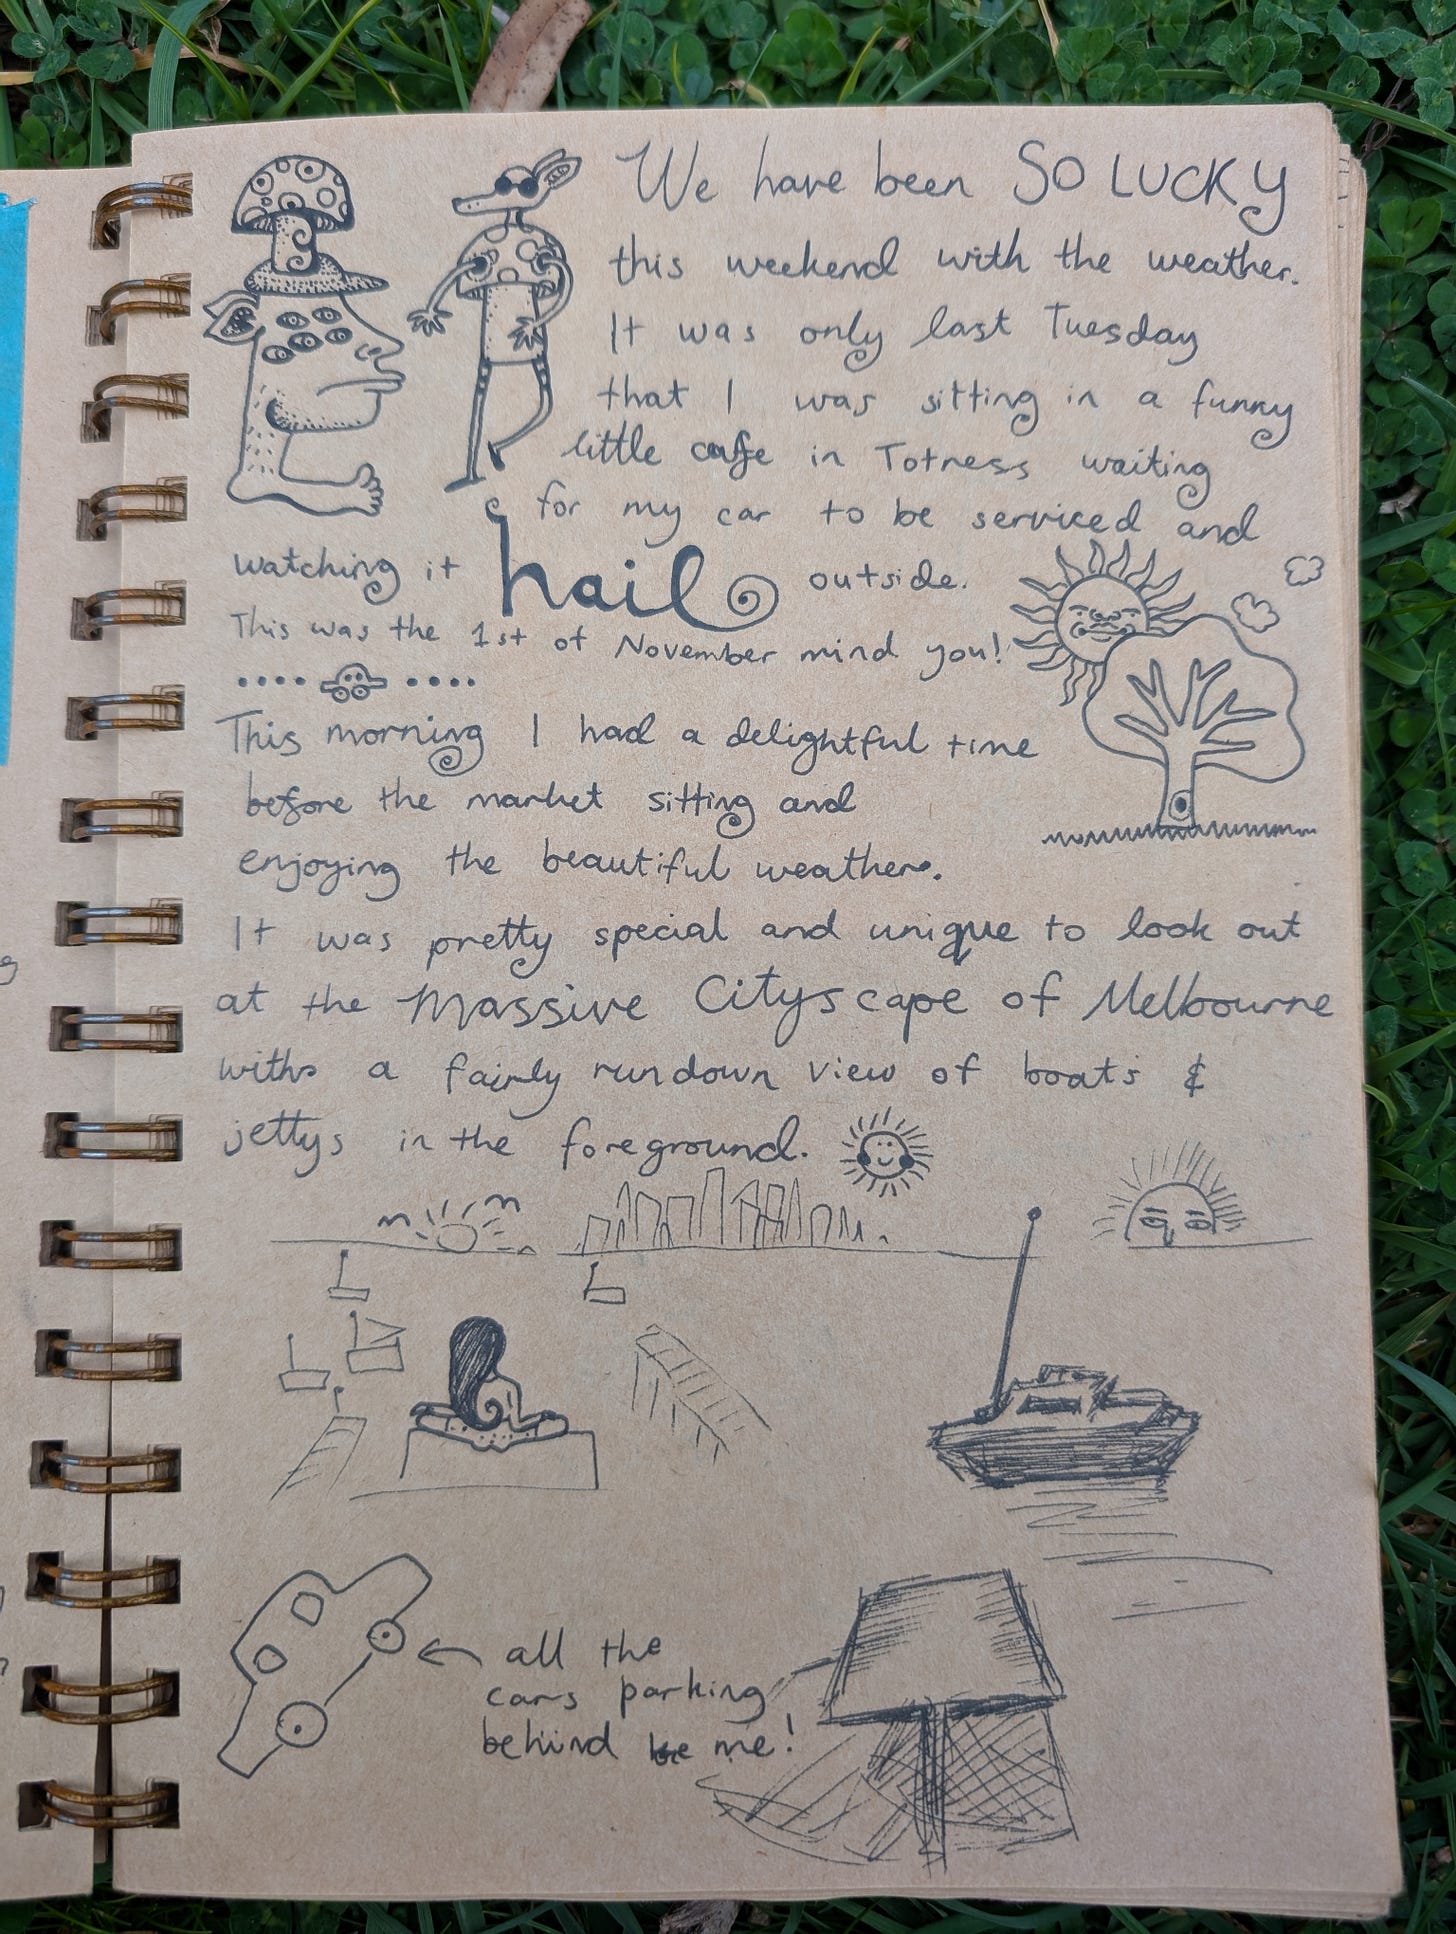 We have been SO LUCKY
this weekend with the weather.
It was only last Tuesday
that I was sitting in a funny
little cafe in Totness waiting
for my car to be serviced and
watching it hail outside.
This was the 1st of November mind you!
This morning I had a delightful time
before the market sitting and
enjoying the beautiful weather.
It was pretty special and unique to look out
at the Massive Cityscape of Melbourne
with a fairly rundown view of boats &
jettys in the foreground.
all the
cars parking
behind me!